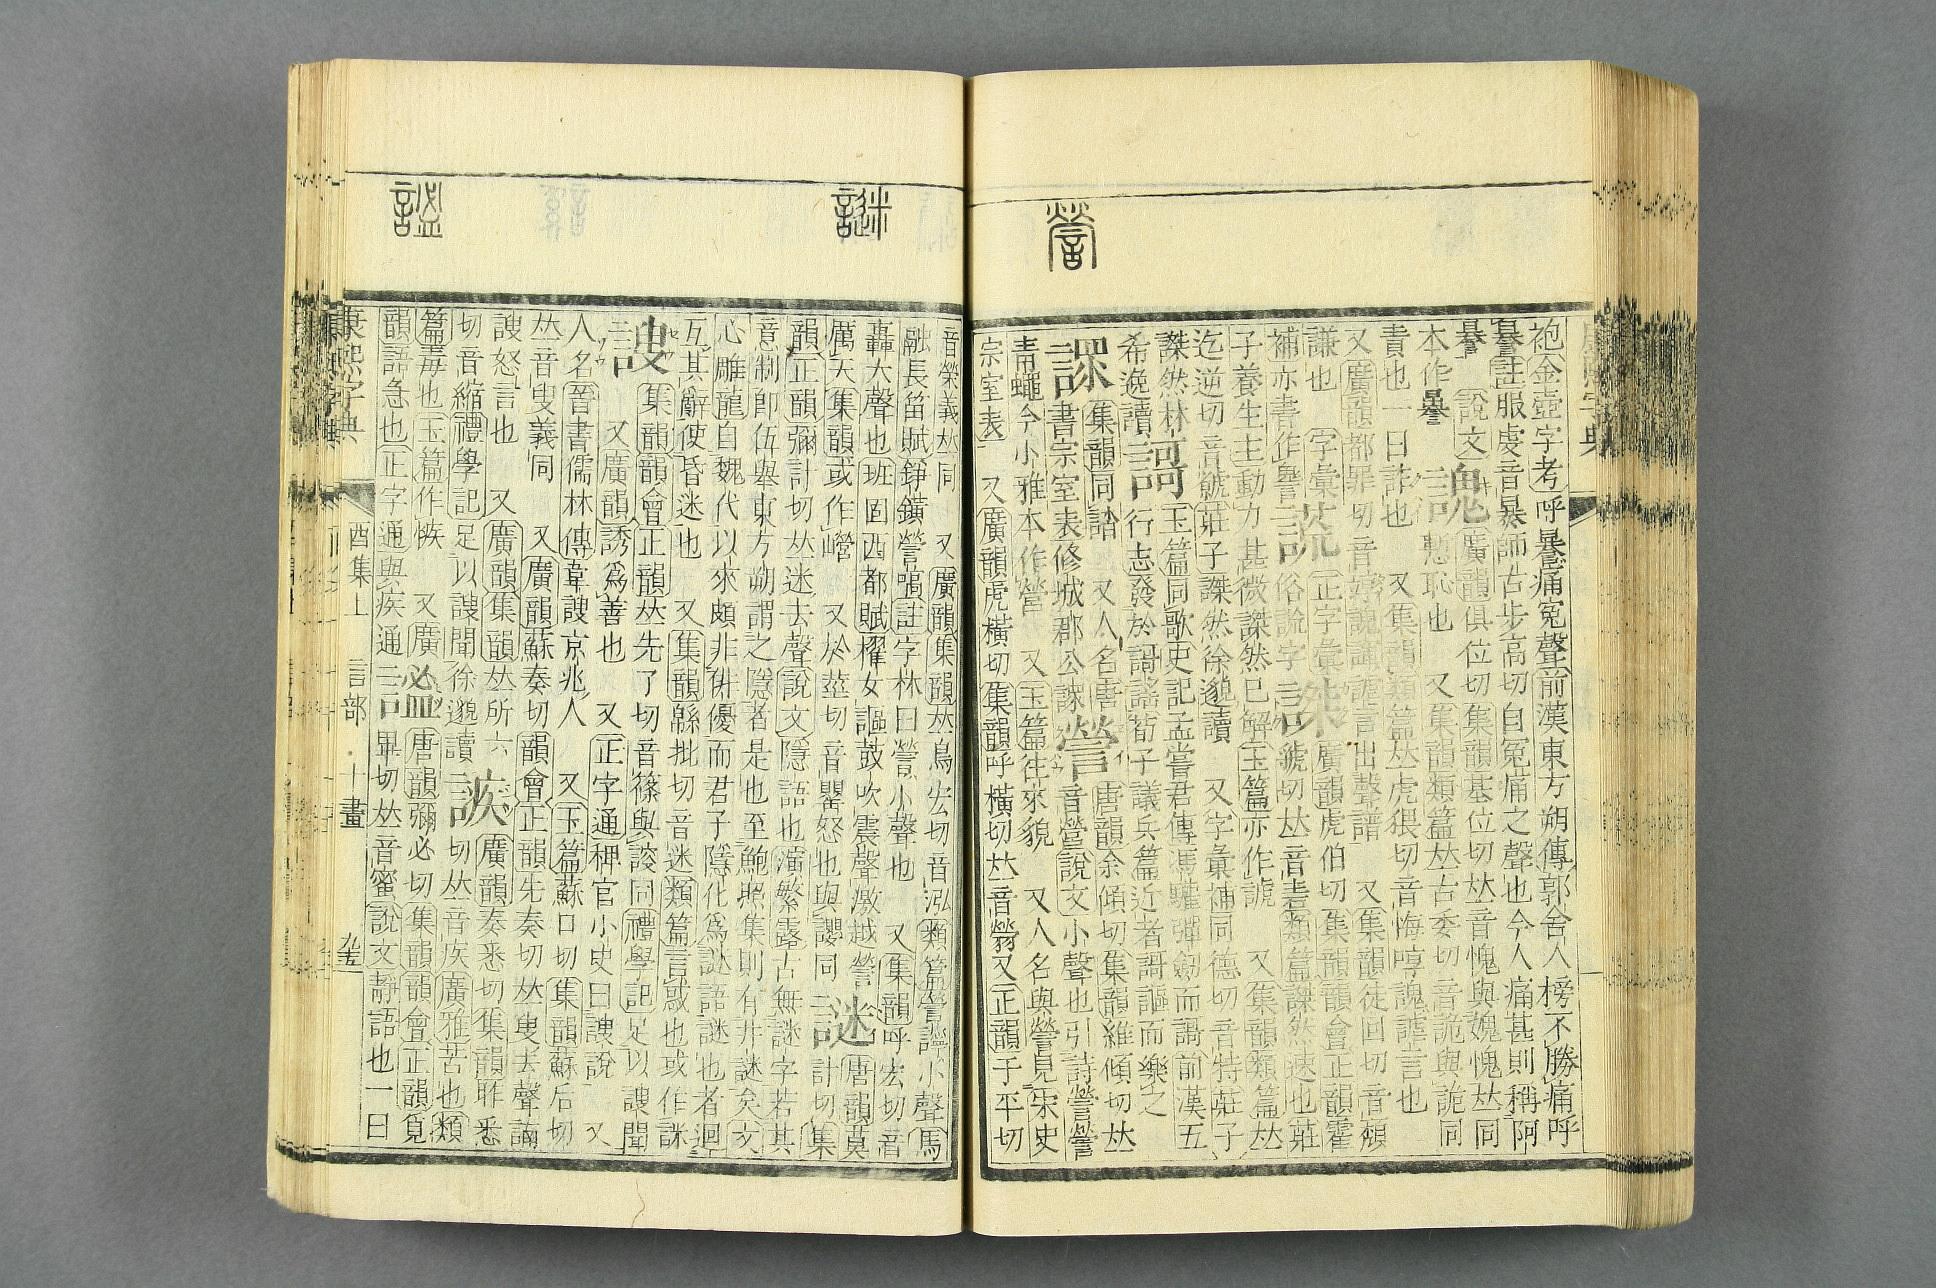 謍
袍金壺字考呼㬥痛冤聲前漢東方朔傳郭舍人榜不勝痛呼
㬥註服虔音暴師古步高切自冤痛之聲也今人痛甚則稱阿
㬥 說文
本作
謉
廣韻俱位切集韻基位切𠀤音愧與媿愧𠀤同
慙恥也 又集韻類篇𠀤古委切音詭與詭同
責也一曰詐也 又集韻類篇𠀤虎猥切音悔啍謉謔言也
又廣韻都罪切音 又集韻徒回切音頹
謙也 字彙
補亦書作譽
謊
正字彙
俗謊字
廣韻虎伯切集韻韻會正韻霍
虢切𠀤音 類篇謋然速也莊
子養生主動刀甚微謋然已解玉篇亦作謼 又集韻類篇𠀤
迄逆切音虩莊子謋然徐邈讀 又字彙補同德切音特莊子
謋然林
希逸讀
謌
玉篇同歌史記孟嘗君傳馮驩彈劒而謌前漢五
行志發於謌謠荀子議兵篇近者謌謳而樂之
集韻同諮 又人名唐
書宗室表修城郡公
謍
唐韻余傾切集韻維傾切𠀤
音營說文小聲也引詩謍謍
靑蠅今小雅本作營 又玉篇往來貌 又人名與謍見宋史
宗室表 又廣韻虎橫切集韻呼橫切𠀤音 又正韻于平切
謎
謐
音榮義𠀤同 又廣韻集韻𠀤烏宏切音泓類篇謍謍小聲馬
融長笛賦錚鐄謍嗃註字林曰謍小聲也 又集韻呼宏切音
轟大聲也班固西都賦櫂女謳鼓吹震聲激越謍
厲天集韻或作嶜 又於莖切音罌怒也與譻同
謎
唐韻莫
計切集
韻正韻彌計切𠀤迷去聲說文隱語也演繁露古無謎字若其
意制卽伍舉東方朔謂之隱者是也至鮑照集則有井謎矣文
心雕龍自魏代以來頗非俳優而君子隱化爲謎語謎也者迴
互其辭使昏迷也 又集韻緜批切音迷類篇言惑也或作詸
謏
集韻韻會正韻𠀤先了切音篠與 同禮學記足以謏聞
又廣韻誘爲善也 又正字通稗官小史曰謏說 又
人名晉書儒林傳韋謏京兆人 又玉篇蘇口切集韻蘇后切
𠀤音叟義同 又廣韻蘇奏切韻會正韻先奏切𠀤叟去聲
謏怒言也 又廣韻集韻𠀤所六
切音縮禮學記足以謏聞徐邈讀
誺
廣韻秦悉切集韻昨悉
切𠀤音疾廣雅苦也類
篇毒也玉篇作 又廣
韻語急也正字通與疾通
謐
唐韻彌必切集韻韻會正韻覓
畢切𠀤音蜜說文靜語也一曰
康熙字典 酉集上 言部 十畫